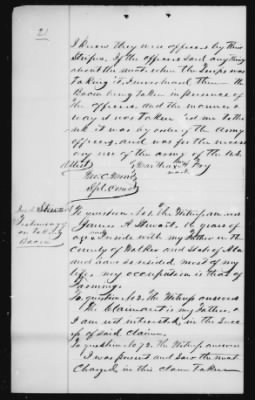 2
I knew they were officers by their
Stripes, If the officers said anything
about the meat when the Troops was
taking it, I never heard them. The
Bacon being taken in presence of
the officers, and the manner &
way it was taken led me to
it was by order of the Army
officers, and was for the necess
ary use of the army of the U.S.
Attest
Martha Fry
mark
Spl. Com
Stewart
Testimony
as to taking
Bacon
To question No 1. the Witness answers
James A Stewart. 16 years of
age. I reside with my Father in the
County of Walker and State of Ala
and have so resided most of my
life, my occupation is that of
Farming.
To question No 2. the Witness answers
the Claimant is my Father, &
I am not interested in the Succ
ess of said claim.
To question No 72. the Witness answers
I was present and saw the meat
Charged in this claim taken